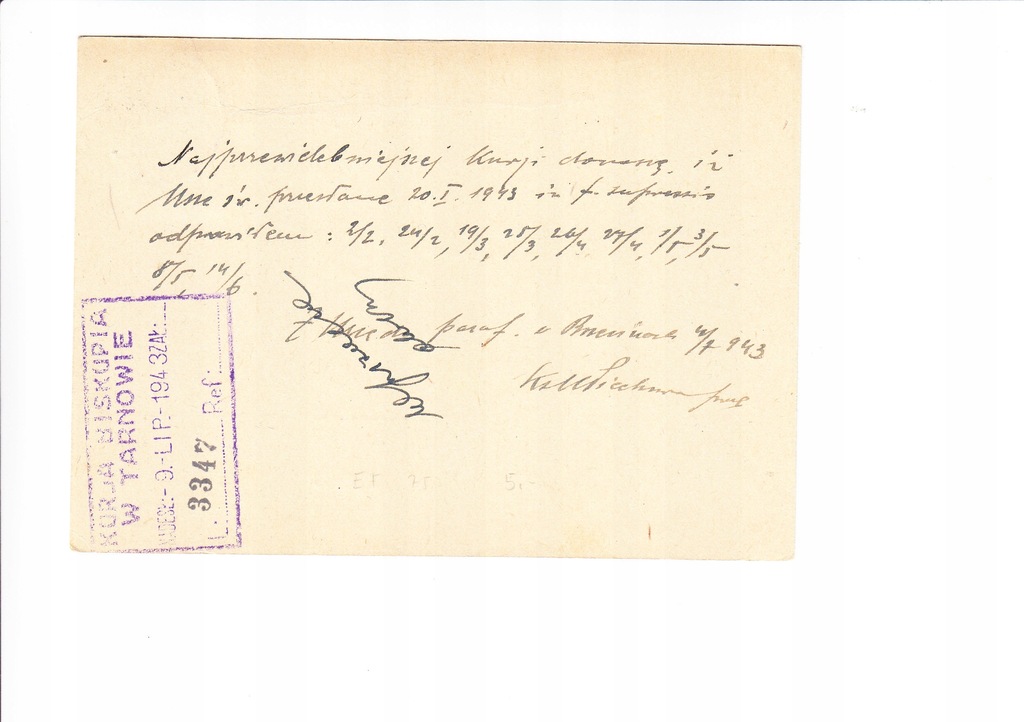 Najprzewielebniejszej Kurji donoszę, iż
Msze św. przesłane 20.I.1943 in f. supressis
odprawiłem: 2/2, 24/2, 19/3, 25/3, 26/4, 27/4, 1/5, 3/5
8/5, 14/6.
Z Urzędu paraf. w 943
Ks.
KURJA BISKUPIA
W TARNOWIE
NADESZŁ:- 9.-LIP.-1943 ZAŁ:
L. 3347 Ref:
5.-